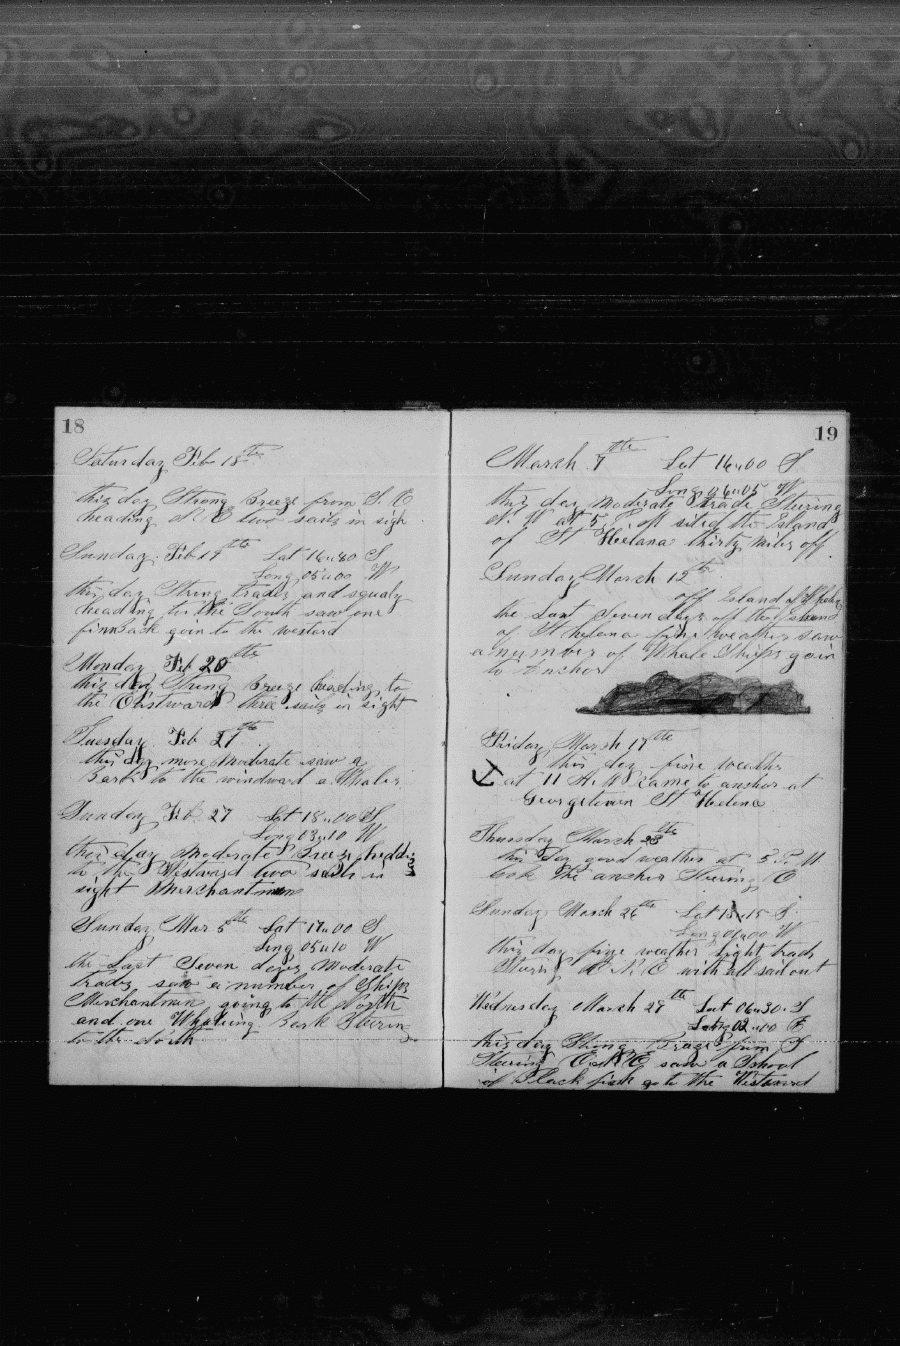 18
Saturday Feb 18th
this day Strong Breeze from S. E
heading N. E two sails in sigh
Sunday Feb 19th Lat 16 " 40 S
Long 05 " 00 W
this day Strong trades and squaly
heading to the South saw one
finnback goin to the westard
Monday Feb 20th
this day Strong Breeze heading to
the Eastward three sails in sight
Tuesday Feb 21th
this day more moderate saw a
Bark to the windward a Whaler
Sunday Feb 27 Lat 18 " 00 S
Long 03 " 10 W
this day moderate Breeze heddin
to the Westward two sails in
sight Merchantmen
Sunday Mar 5th Lat 17 " 00 S
Long 05 " 10 W
the Last Seven days Moderate
trades, saw a number of Ships
Merchantmen going to the North
and one Whaleing Bark Steerin
to the North
19
March 9th Lat 16 " 00 S
Long 06 " 05 W
this day moderate trade Steering
N. W at 5 P. M sited the Island
of St Heelana thirty miles off
Sunday March 12th
off Island of St
the Last Seven days off the Island
of St helena fine weather saw
a number of Whale Ships goin
to Anchor
Friday March 17th
this day fine weather
at 11 A. M came to anchor at
Georgetown St Helena
Thursday March 23th
this day good weather at 5 P. M
took the anchor Steering E
Sunday March 26th Lat 13 " 15 S
Long 04 " 00 W
this day fine weather light trads
Steering E. N. E with all sail out
Wednesday March 29th Lat 06 " 30 S
Long 02 " 00 E
this day Strong Breaze from S
Steering E. N. E saw a School
of Black fish go to the Westward